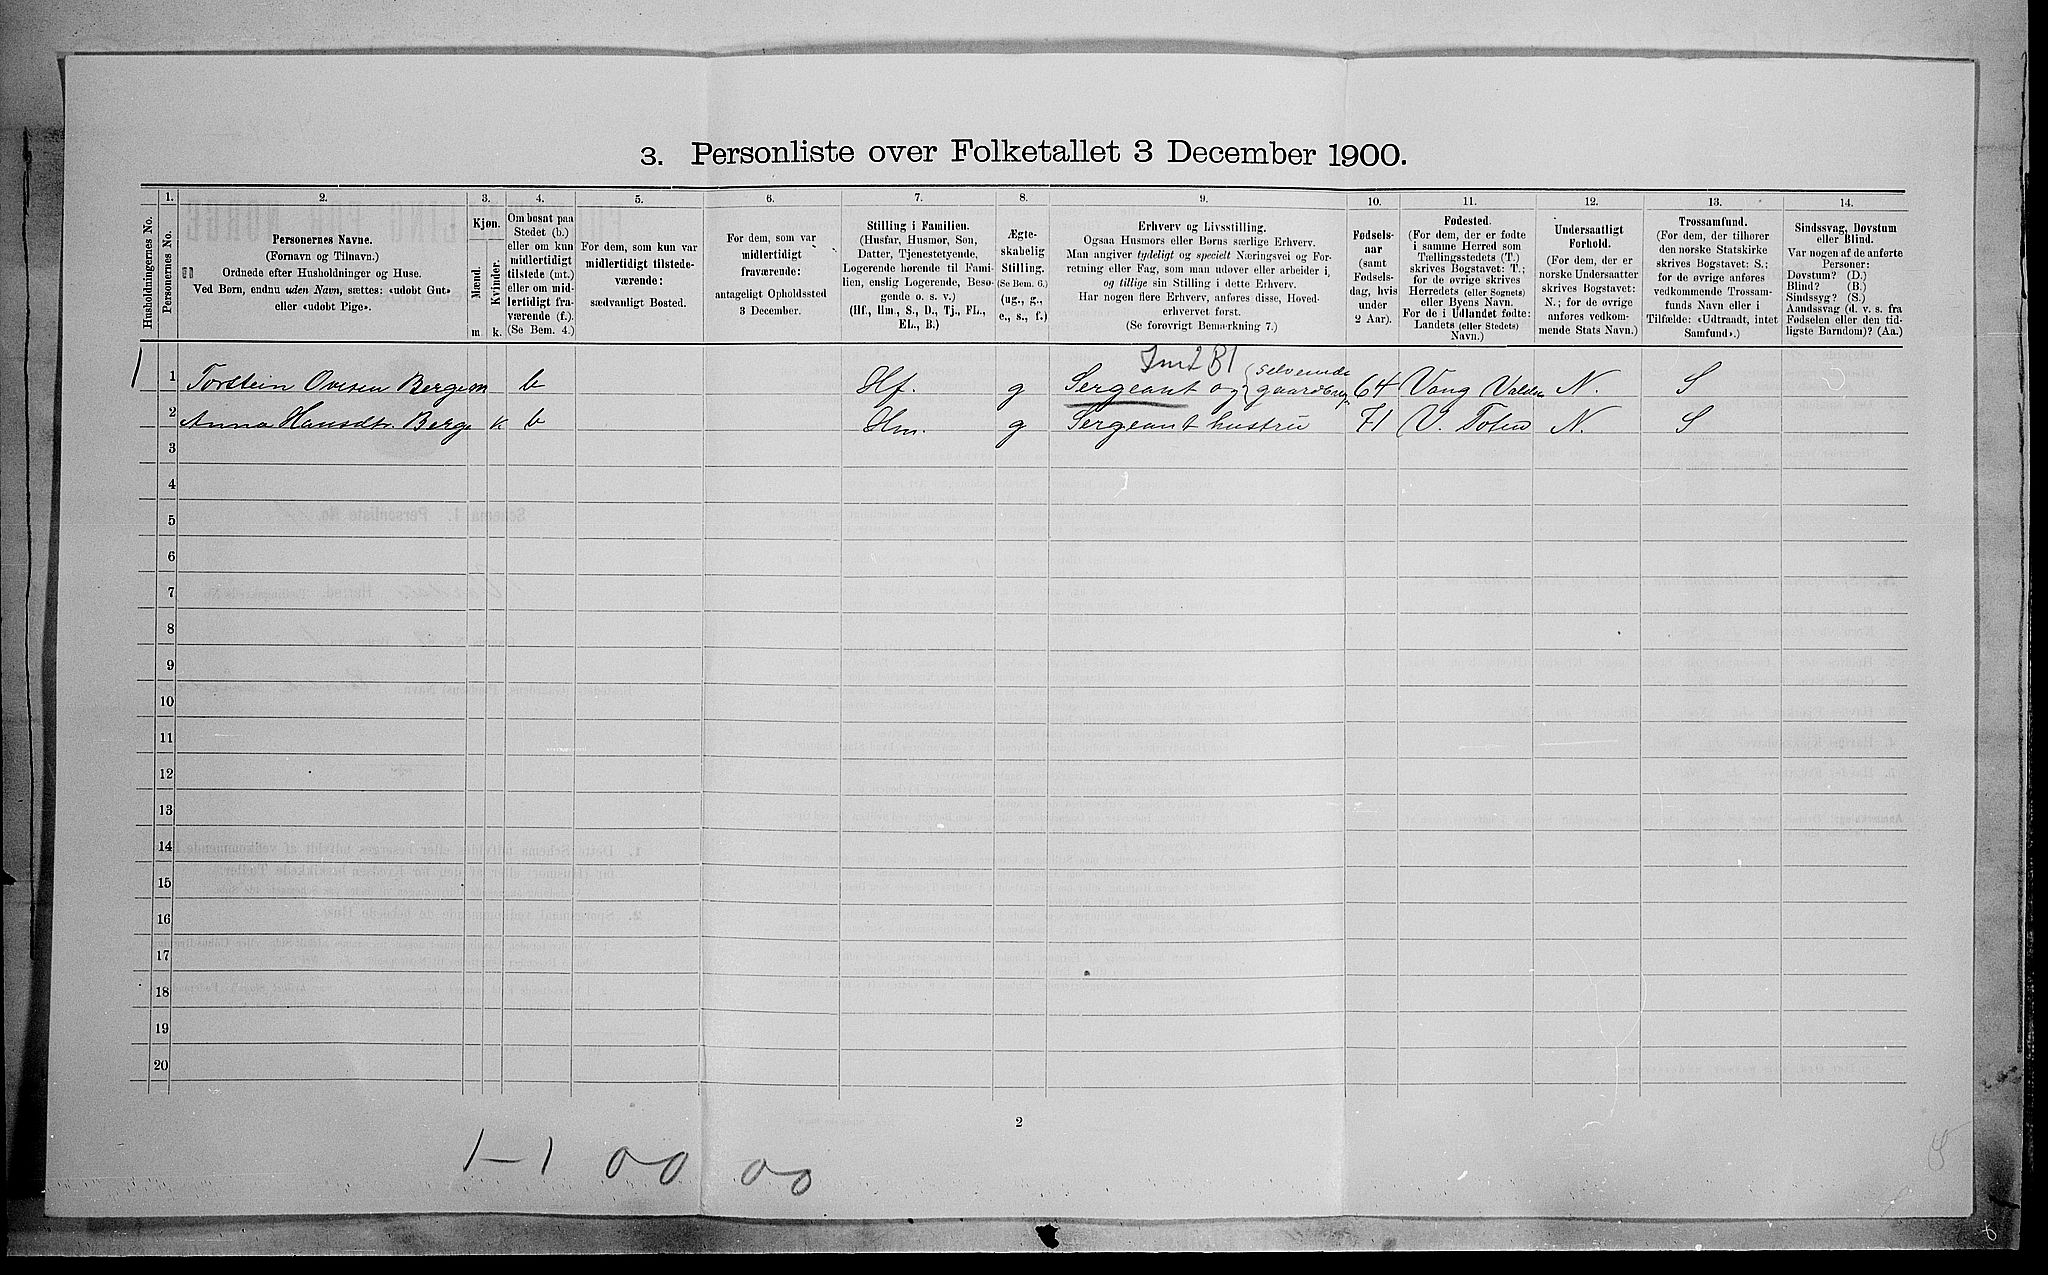 3. Personliste over Folketallet 3 December 1900.
1. 2. 3. 4. 5. 6. 7. 8. 9. 10. 11. 12. 13. 14.
Husholdningernes No.
Personernes No.
Personernes Navne.
(Fornavn og Tilnavn.)
Ordnede efter Husholdninger og Huse.
Ved Børn, endnu uden Navn, sættes: «udøbt Gut»
eller «udøbt Pige».
Kjøn.
Mænd.
Kvinder.
m. k.
Om bosat paa
Stedet (b.)
eller om kun
midlertidigt
tilstede (mt.)
eller om mid-
lertidigt fra-
værende (f.).
(Se Bem. 4.)
For dem, som kun var
midlertidigt tilstede-
værende:
sædvanligt Bosted.
For dem, som var
midlertidigt
fraværende:
antageligt Opholdssted
3 December.
Stilling i Familien.
(Husfar, Husmor, Søn,
Datter, Tjenestetyende,
Logerende hørende til Fami-
lien, enslig Logerende, Besø-
gende o. s. v.)
(Hf., Hm., S., D., Tj., FL.,
EL., B.)
Ægte-
skabelig
Stilling.
(Se Bem. 6.)
(ug., g.,
e., s., f.)
Erhverv og Livsstilling.
Ogsaa Husmors eller Børns særlige Erhverv.
Man angiver tydeligt og specielt Næringsvei og For-
retning eller Fag, som man udøver eller arbeider i,
og tillige sin Stilling i dette Erhverv.
Har nogen flere Erhverv, anføres disse, Hoved-
erhvervet først.
(Se forøvrigt Bemærkning 7.)
Fødsels-
aar
(samt
Fødsels-
dag, hvis
under
2 Aar).
Fødested.
(For dem, der er fødte
i samme Herred som
Tællingsstedets (T.)
skrives Bogstavet: T.;
for de øvrige skrives
Herredets (eller Sognets)
eller Byens Navn.
For de i Udlandet fødte:
Landets (eller Stedets)
Navn.)
Undersaatligt
Forhold.
(For dem, der er
norske Undersaatter
skrives Bogstavet:
N.; for de øvrige
anføres vedkom-
mende Stats Navn.)
Trossamfund.
(For dem, der tilhører
den norske Statskirke
skrives Bogstavet: S.;
for de øvrige anføres
vedkommende Trossam-
funds Navn eller i
Tilfælde: «Udtraadt, intet
Samfund».)
Sindssvag, Døvstum
eller Blind.
Var nogen af de anførte
Personer:
Døvstum? (D.)
Blind? (B.)
Sindssyg? (S.)
Aandssvag (d. v. s. fra
Fødselen eller den tid-
ligste Barndom)? (Aa.)
1 1 Torstein Ovesen Berge m b Hf. g Sergeant og selveiende gaardbrug. 64 Vang Valders N. S
2 Anna Hansdtr. Berge k b Hm. g Sergeant hustru 71 V. Toten N. S
3
4
5
6
7
8
9
10
11
12
13
14
15
16
17
18
19
20
2
1-1 00 00